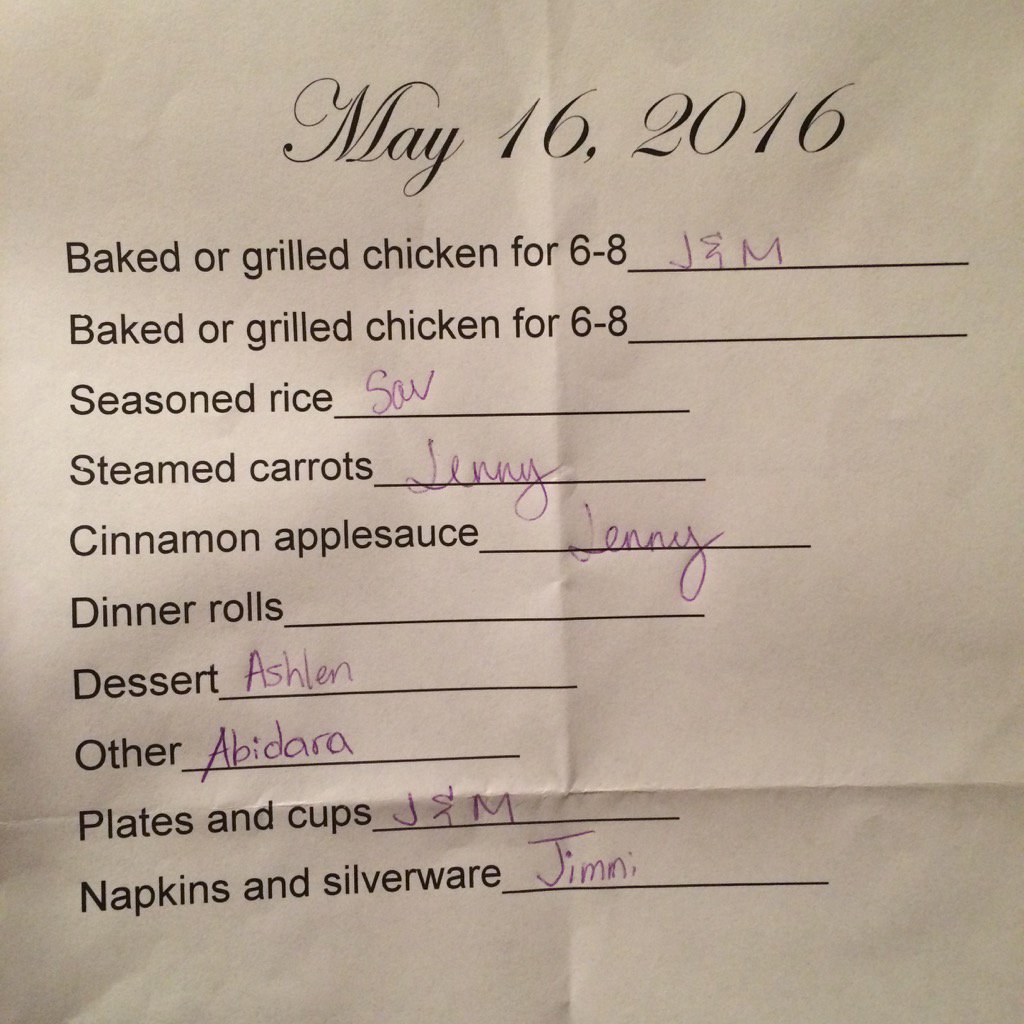 May 16, 2016
Baked or grilled chicken for 6-8 J & M
Baked or grilled chicken for 6-8
Seasoned rice Sav
Steamed carrots Jenny
Cinnamon applesauce Jenny
Dinner rolls
Dessert Ashlen
Other Abidara
Plates and cups J & M
Napkins and silverware Jimmi